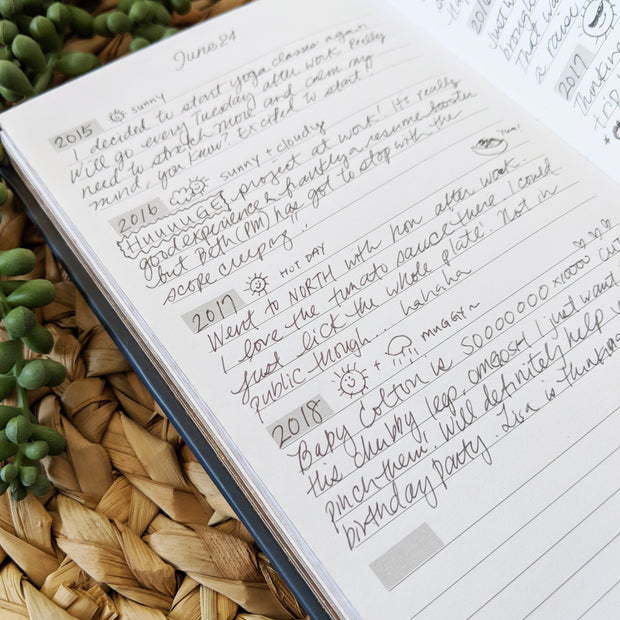 June 24
2015 sunny
I decided to start yoga classes again.
Will go every Tuesday after work. Really
need to stretch more and calm my
mind, you know? Excited to start!
2016 sunny + cloudy
Huuuuge project at work! It's really
good experience & frankly a resume booster
but Beth (PM) has got to stop with the
scope creeping
Yum!
2017 HOT DAY
Went to NORTH with hon after work.
I love the tomato sauce there I could
just lick the whole plate. Not in
public though... hahaha
2018 + MUGGY~
Baby Colton is 50000000 x1000
His chubby legs omgosh! I just want
pinch them! Will definitely help
birthday party. Lisa is thinking
2016
Just
brought
That was
a raise
2017
Thinking